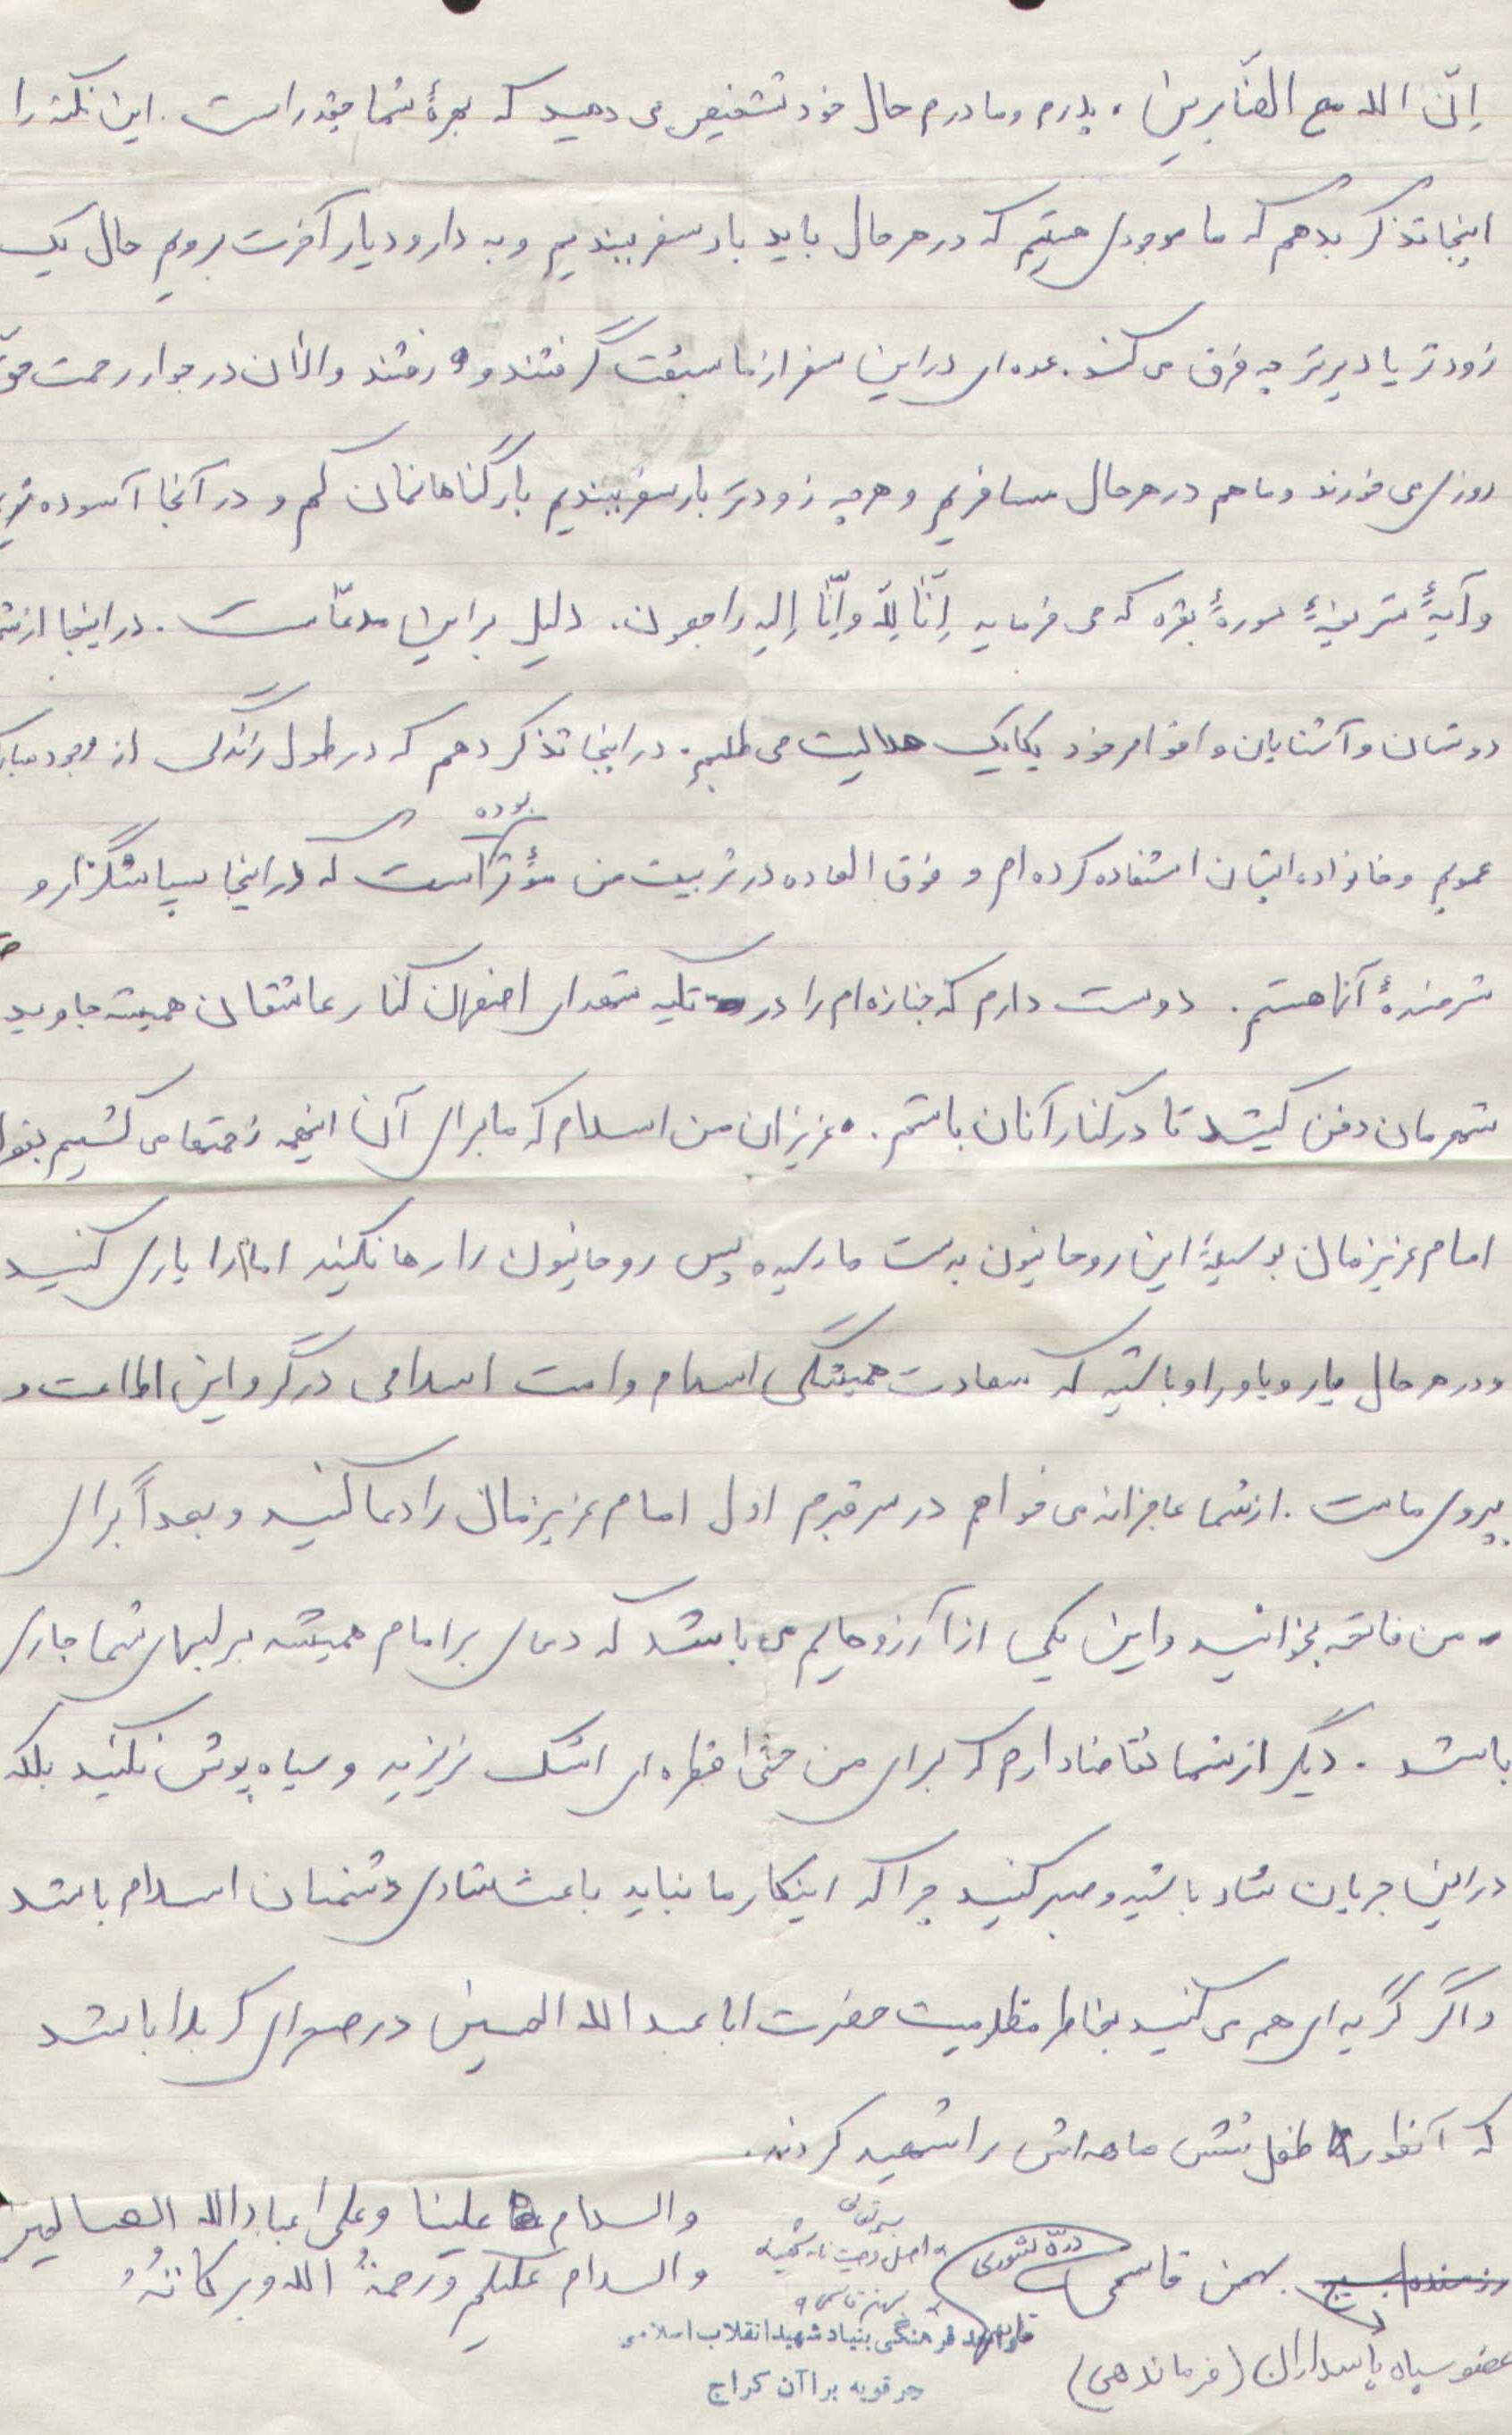 اِنّ الله مع الصّابرین، پدرم و مادرم حال خود تشخیص می دهید که بهرهٔ شما چقدر است. این نکته را
اینجا تذکر بدهم که ما موجودی هستیم که در هر حال باید بار سفر ببندیم و به دار و دیار آخرت برویم حال یک
زودتر یا دیرتر چه فرق می کند. عده ای در این سفر از ما سبقت گرفتند و رفتند و الآن در جوار رحمت حق
روزی می خورند و ما هم در هر حال مسافریم و هر چه زودتر بار سفر ببندیم بار گناهانمان کم و در آنجا آسوده تریم
و آیهٔ شریفهٔ سورهٔ بقره که می فرماید اِنّا لِلّه و اِنّا اِلیه راجعون. دلیل بر این مدعّاست. در اینجا از
دوستان و آشنایان و اقوام خود یکایک حلالیت می طلبم. در اینجا تذکر دهم که در طول زندگی از وجود مبارک
عمویم و خانواده ایشان استفاده کرده ام و فوق العاده در تربیت من مؤثر بوده است که در اینجا سپاسگزار و
شرمندهٔ آنها هستم. دوست دارم که جنازه ام را در تکیه شهدای اصفهان کنار عاشقان همیشه جاوید
شهرمان دفن کنید تا در کنار آنان باشم. عزیزان من اسلام که ما برای آن اینهمه زحمتها می کشیم بقول
امام عزیزمان بوسیلهٔ این روحانیون بدست ما رسیده پس روحانیون را رها نکنید امام را یاری کنید
و در هر حال یار و یاور او باشید که سعادت همیشگی اسلام و امت اسلامی در گرو این اطاعت و
پیروی ماست. از شما عاجزانه می خواهم در سر قبرم اول امام عزیزمان را دعا کنید و بعداً برای
من فاتحه بخوانید و این یکی از آرزوهایم می باشد که دعای بر امام همیشه بر لبهای شما جاری
باشد. دیگر از شما تقاضا دارم که برای من حتّی قطره ای اشک نریزید و سیاه پوش نکنید بلکه
در این جریان شاد باشید و صبر کنید چرا که اینکار ما نباید باعث شادی دشمنان اسلام باشد
و اگر گریه ای هم می کنید بخاطر مظلومیت حضرت ابا عبدالله الحسین در صحرای کربلا باشد
که آنطور طفل شش ماهه اش را شهید کردند.
والسلام علینا و علی عباد الله الصالحین
والسلام علیکم و رحمةُ الله و برکاتُهُ
رزمنده بسیج بهمن قاسمی (درّه شوری)
عضو سپاه پاسداران (فرماندهی)
اصل وصیت نامه شهید
بهمن قاسمی
واحد فرهنگی بنیاد شهید انقلاب اسلامی
جرقویه براآن کراج